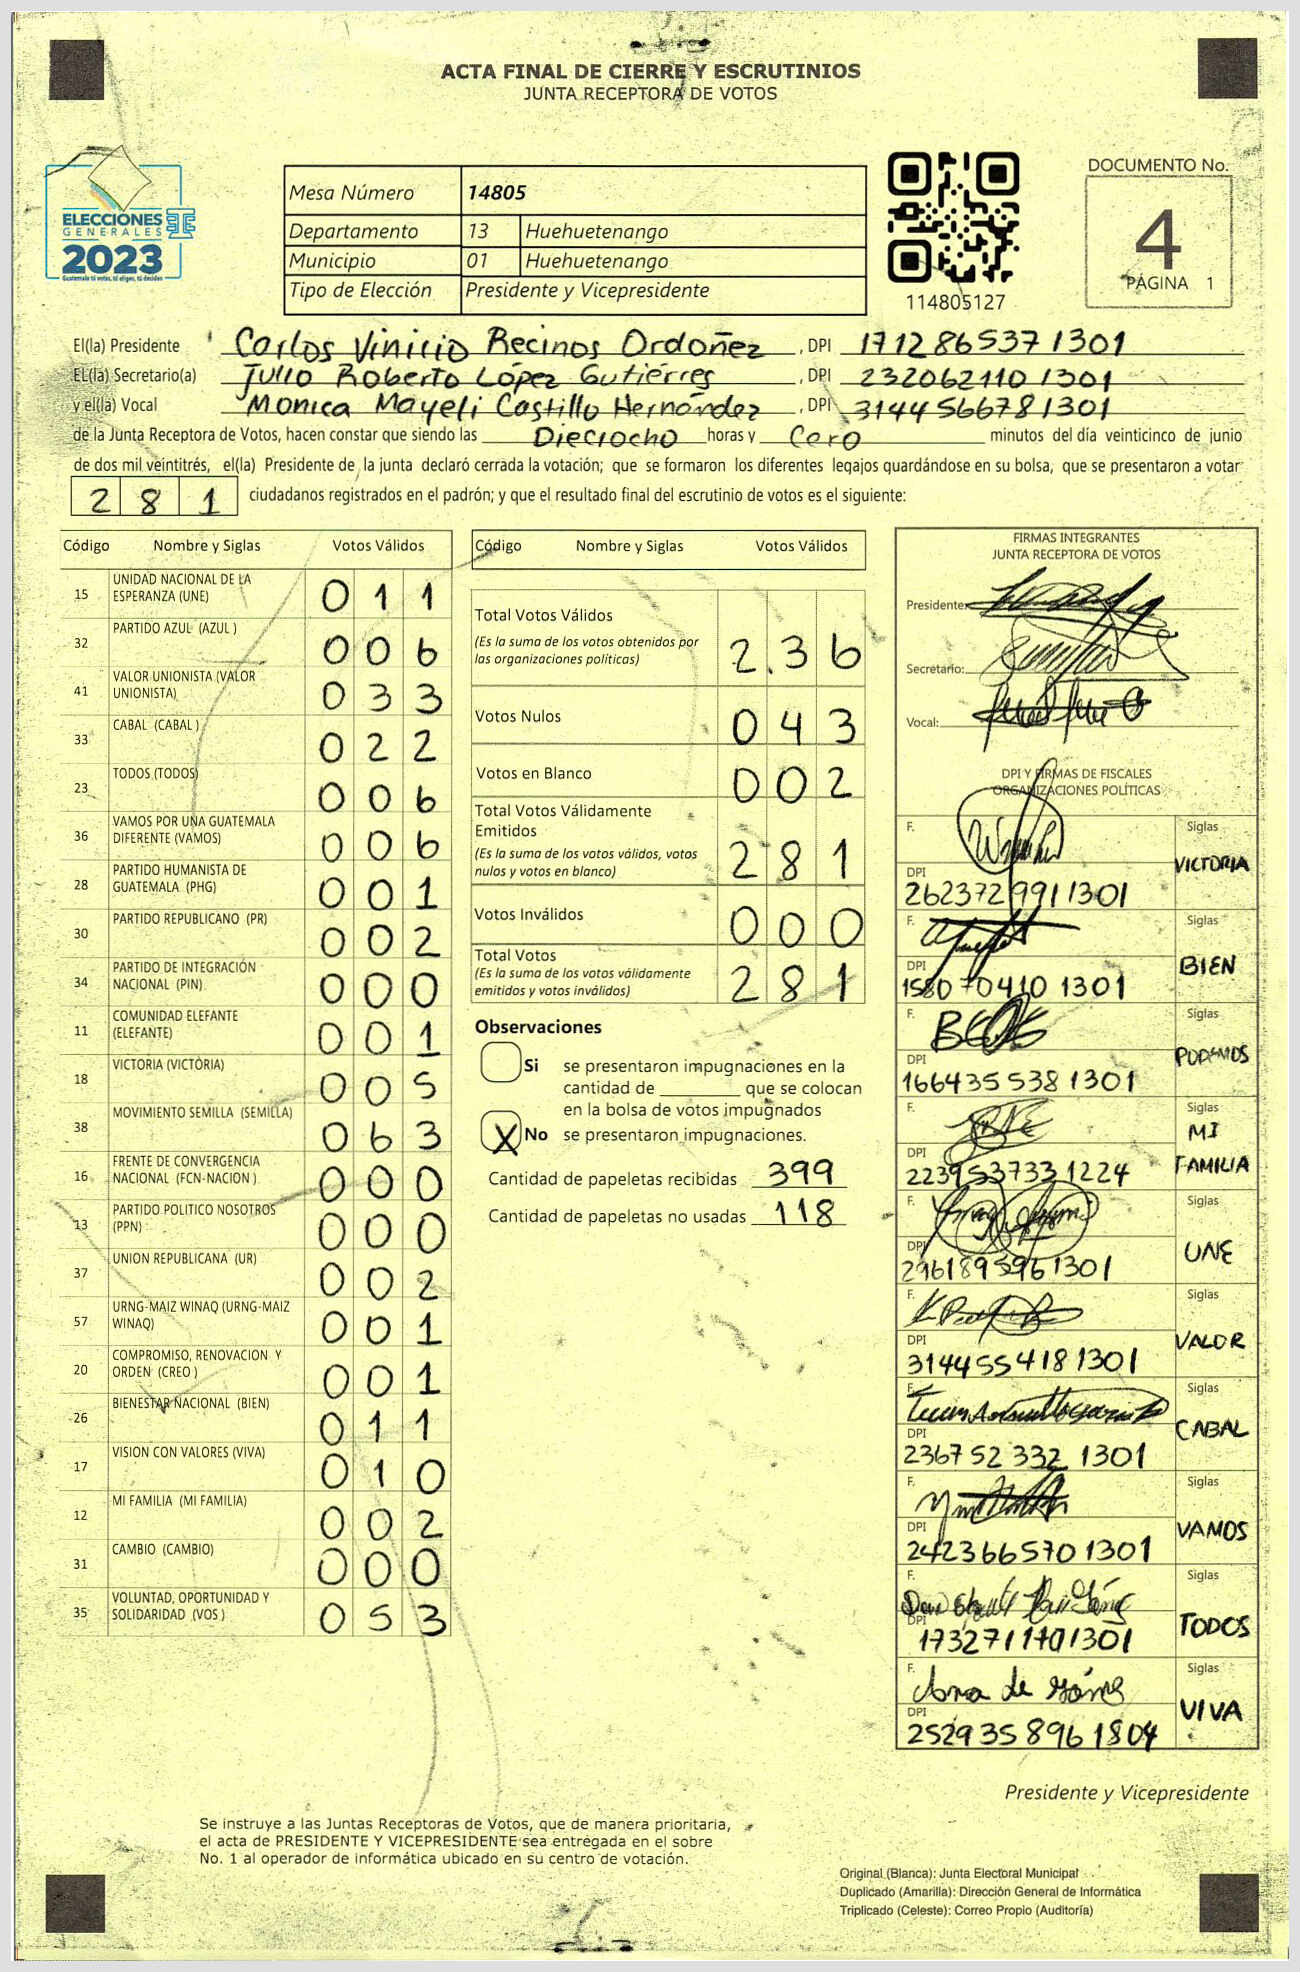 ACTA FINAL DE CIERRE Y ESCRUTINIOS
JUNTA RECEPTORA DE VOTOS
ELECCIONES
GENERALES
2023
Guatemala tú votas, tú eliges, tú decides
Mesa Número 14805
Departamento 13 Huehuetenango
Municipio 01 Huehuetenango
Tipo de Elección Presidente y Vicepresidente
114805127
DOCUMENTO No.
4
PÁGINA 1
El(la) Presidente Carlos Vinicio Recinos Ordoñez, DPI 1712865371301
EL(la) Secretario(a) Julio Roberto López Gutiérres, DPI 2320621101301
y el(la) Vocal Monica Mayeli Castillo Hernández, DPI 3144566781301
de la Junta Receptora de Votos, hacen constar que siendo las Dieciocho horas y Cero minutos del día veinticinco de junio
de dos mil veintitrés, el(la) Presidente de la junta declaró cerrada la votación; que se formaron los diferentes legajos guardándose en su bolsa, que se presentaron a votar
281 ciudadanos registrados en el padrón; y que el resultado final del escrutinio de votos es el siguiente:
Código Nombre y Siglas Votos Válidos
15 UNIDAD NACIONAL DE LA ESPERANZA (UNE) 011
32 PARTIDO AZUL (AZUL ) 006
41 VALOR UNIONISTA (VALOR UNIONISTA) 033
33 CABAL (CABAL ) 022
23 TODOS (TODOS) 006
36 VAMOS POR UNA GUATEMALA DIFERENTE (VAMOS) 006
28 PARTIDO HUMANISTA DE GUATEMALA (PHG) 001
30 PARTIDO REPUBLICANO (PR) 002
34 PARTIDO DE INTEGRACIÓN NACIONAL (PIN) 000
11 COMUNIDAD ELEFANTE (ELEFANTE) 001
18 VICTORIA (VICTORIA) 005
38 MOVIMIENTO SEMILLA (SEMILLA) 063
16 FRENTE DE CONVERGENCIA NACIONAL (FCN-NACION ) 000
13 PARTIDO POLITICO NOSOTROS (PPN) 000
37 UNION REPUBLICANA (UR) 002
57 URNG-MAIZ WINAQ (URNG-MAIZ WINAQ) 001
20 COMPROMISO, RENOVACION Y ORDEN (CREO ) 001
26 BIENESTAR NACIONAL (BIEN) 011
17 VISION CON VALORES (VIVA) 010
12 MI FAMILIA (MI FAMILIA) 002
31 CAMBIO (CAMBIO) 000
35 VOLUNTAD, OPORTUNIDAD Y SOLIDARIDAD (VOS ) 053
Código Nombre y Siglas Votos Válidos
Total Votos Válidos 2.36
(Es la suma de los votos obtenidos por
las organizaciones políticas)
Votos Nulos 043
Votos en Blanco 002
Total Votos Válidamente
Emitidos 281
(Es la suma de los votos válidos, votos
nulos y votos en blanco)
Votos Inválidos 000
Total Votos 281
(Es la suma de los votos válidamente
emitidos y votos inválidos)
Observaciones
Si se presentaron impugnaciones en la
cantidad de ________ que se colocan
en la bolsa de votos impugnados
X No se presentaron impugnaciones.
Cantidad de papeletas recibidas 399
Cantidad de papeletas no usadas 118
FIRMAS INTEGRANTES
JUNTA RECEPTORA DE VOTOS
Presidente:
Secretario:
Vocal:
DPI Y FIRMAS DE FISCALES
ORGANIZACIONES POLÍTICAS
F. Siglas
VICTORIA
DPI
2623729911301
F. Siglas
BIEN
DPI
1580704101301
F. Siglas
PODEMOS
DPI
1664355381301
F. Siglas
MI
FAMILIA
DPI
2239537331224
F. Siglas
UNE
DPI
2961895961301
F. Siglas
VALOR
DPI
3144554181301
F. Siglas
CABAL
DPI
2367523321301
F. Siglas
VAMOS
DPI
2423665701301
F. Siglas
TODOS
DPI
1732711101301
F. Siglas
VIVA
DPI
2529358961804
Presidente y Vicepresidente
Se instruye a las Juntas Receptoras de Votos, que de manera prioritaria,
el acta de PRESIDENTE Y VICEPRESIDENTE sea entregada en el sobre
No. 1 al operador de informática ubicado en su centro de votación.
Original (Blanca): Junta Electoral Municipal
Duplicado (Amarilla): Dirección General de Informática
Triplicado (Celeste): Correo Propio (Auditoría)